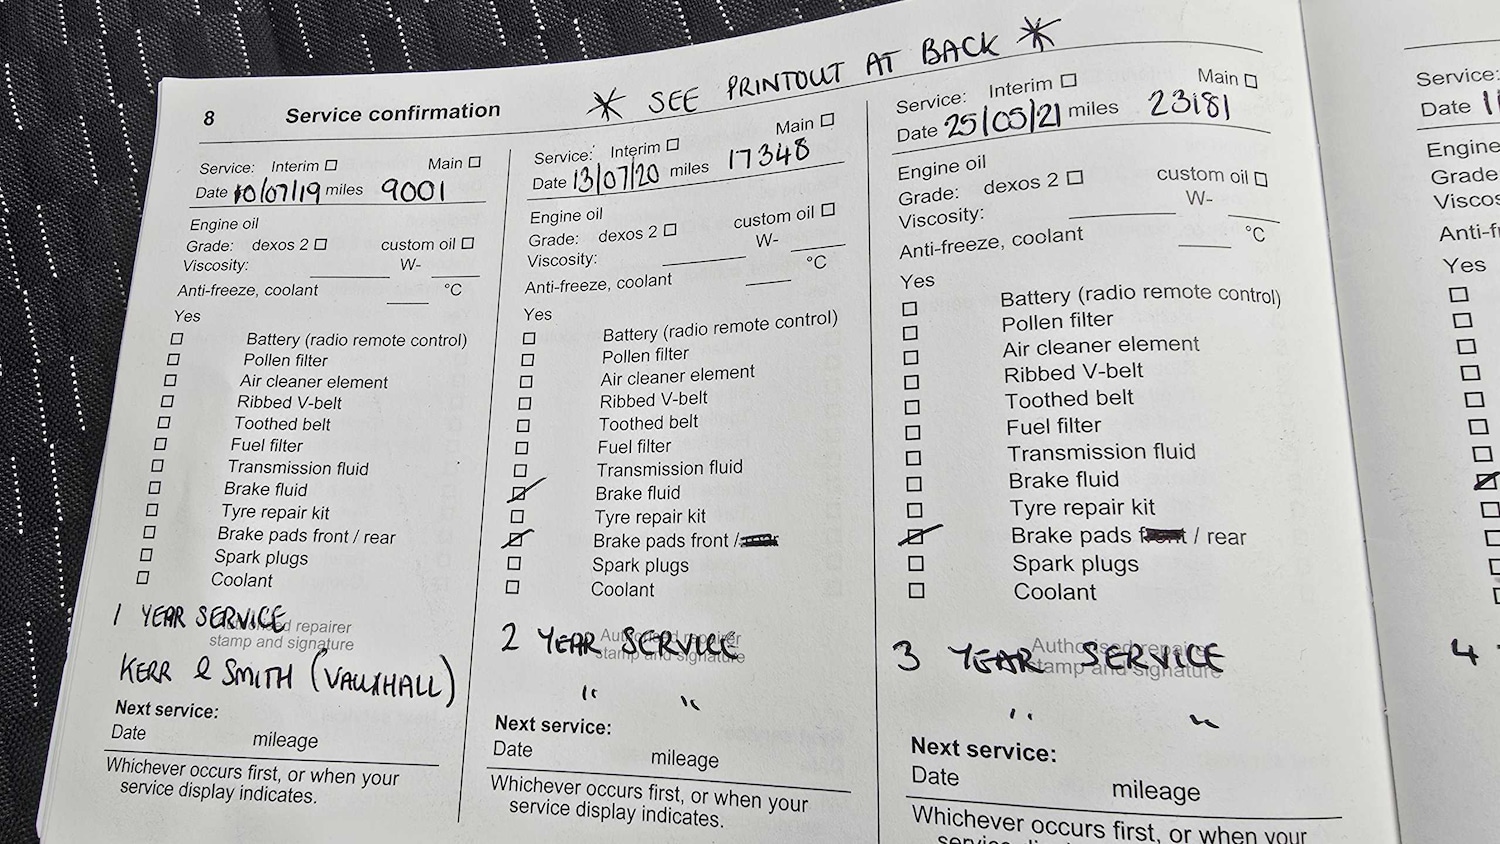 8 Service confirmation
* SEE PRINTOUT AT BACK *
Service: Interim Main
Date 10/07/19 miles 9001
Engine oil
Grade: dexos 2 custom oil
Viscosity: W-
Anti-freeze, coolant °C
Yes
Battery (radio remote control)
Pollen filter
Air cleaner element
Ribbed V-belt
Toothed belt
Fuel filter
Transmission fluid
Brake fluid
Tyre repair kit
Brake pads front / rear
Spark plugs
Coolant
1 YEAR SERVICE
Authorised repairer
stamp and signature
KERR & SMITH (VAUXHALL)
Next service:
Date mileage
Whichever occurs first, or when your
service display indicates.
Service: Interim Main
Date 13/07/20 miles 17348
Engine oil
Grade: dexos 2 custom oil
Viscosity: W-
Anti-freeze, coolant °C
Yes
Battery (radio remote control)
Pollen filter
Air cleaner element
Ribbed V-belt
Toothed belt
Fuel filter
Transmission fluid
Brake fluid
Tyre repair kit
Brake pads front /
Spark plugs
Coolant
2 YEAR SERVICE
Authorised repairer
stamp and signature
" "
Next service:
Date mileage
Whichever occurs first, or when your
service display indicates.
Service: Interim Main
Date 25/05/21 miles 23181
Engine oil
Grade: dexos 2 custom oil
Viscosity: W-
Anti-freeze, coolant °C
Yes
Battery (radio remote control)
Pollen filter
Air cleaner element
Ribbed V-belt
Toothed belt
Fuel filter
Transmission fluid
Brake fluid
Tyre repair kit
Brake pads front / rear
Spark plugs
Coolant
3 YEAR SERVICE
Authorised repairer
stamp and signature
" "
Next service:
Date mileage
Whichever occurs first, or when your
Service:
Date
Engine
Grade
Anti-f
Yes
4